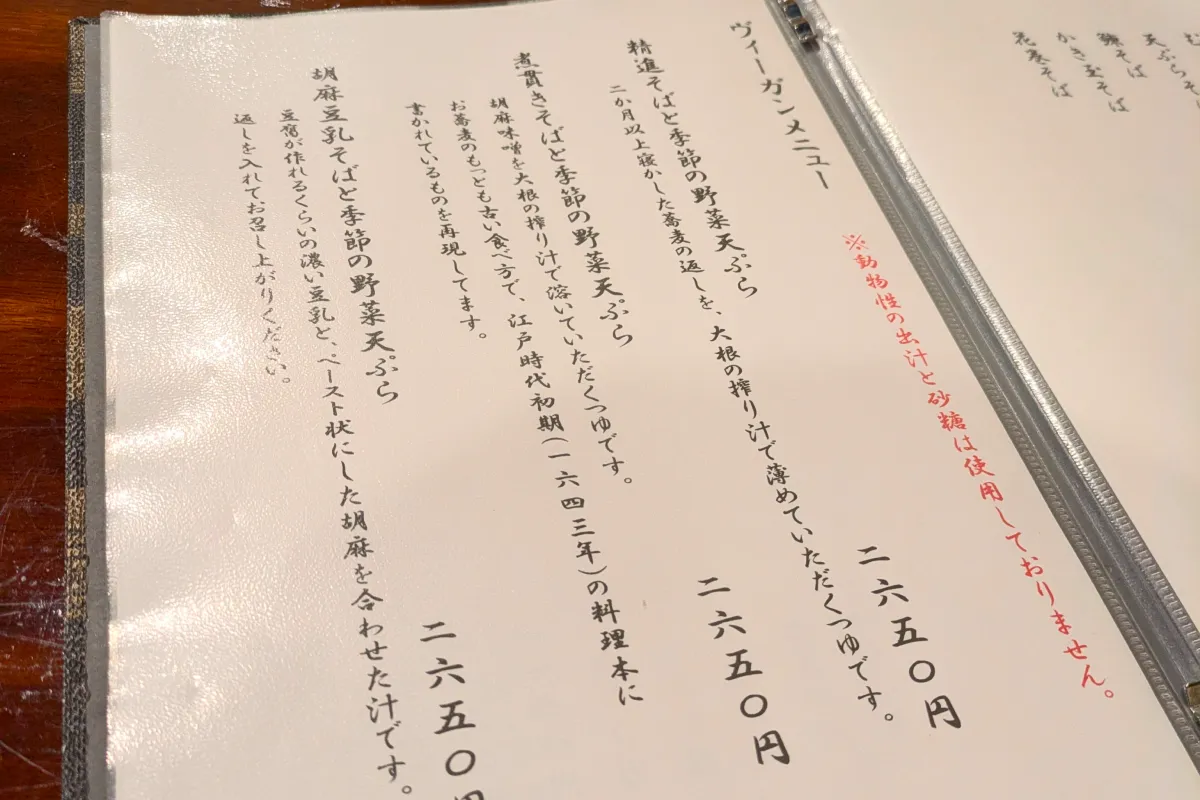 天ぷらそ
鰊そば
かき玉そば
花巻そば
ヴィーガンメニュー
※動物性の出汁と砂糖は使用しておりません。
精進そばと季節の野菜天ぷら
二六五〇円
二か月以上寝かした蕎麦の返しを、大根の搾り汁で薄めていただくつゆです。
煮貫きそばと季節の野菜天ぷら
二六五〇円
胡麻味噌を大根の搾り汁で溶いていただくつゆです。
お蕎麦のもっとも古い食べ方で、江戸時代初期(一六四三年)の料理本に
書かれているものを再現してます。
胡麻豆乳そばと季節の野菜天ぷら
二六五〇円
豆腐が作れるくらいの濃い豆乳と、ペースト状にした胡麻を合わせた汁です。
返しを入れてお召し上がりください。